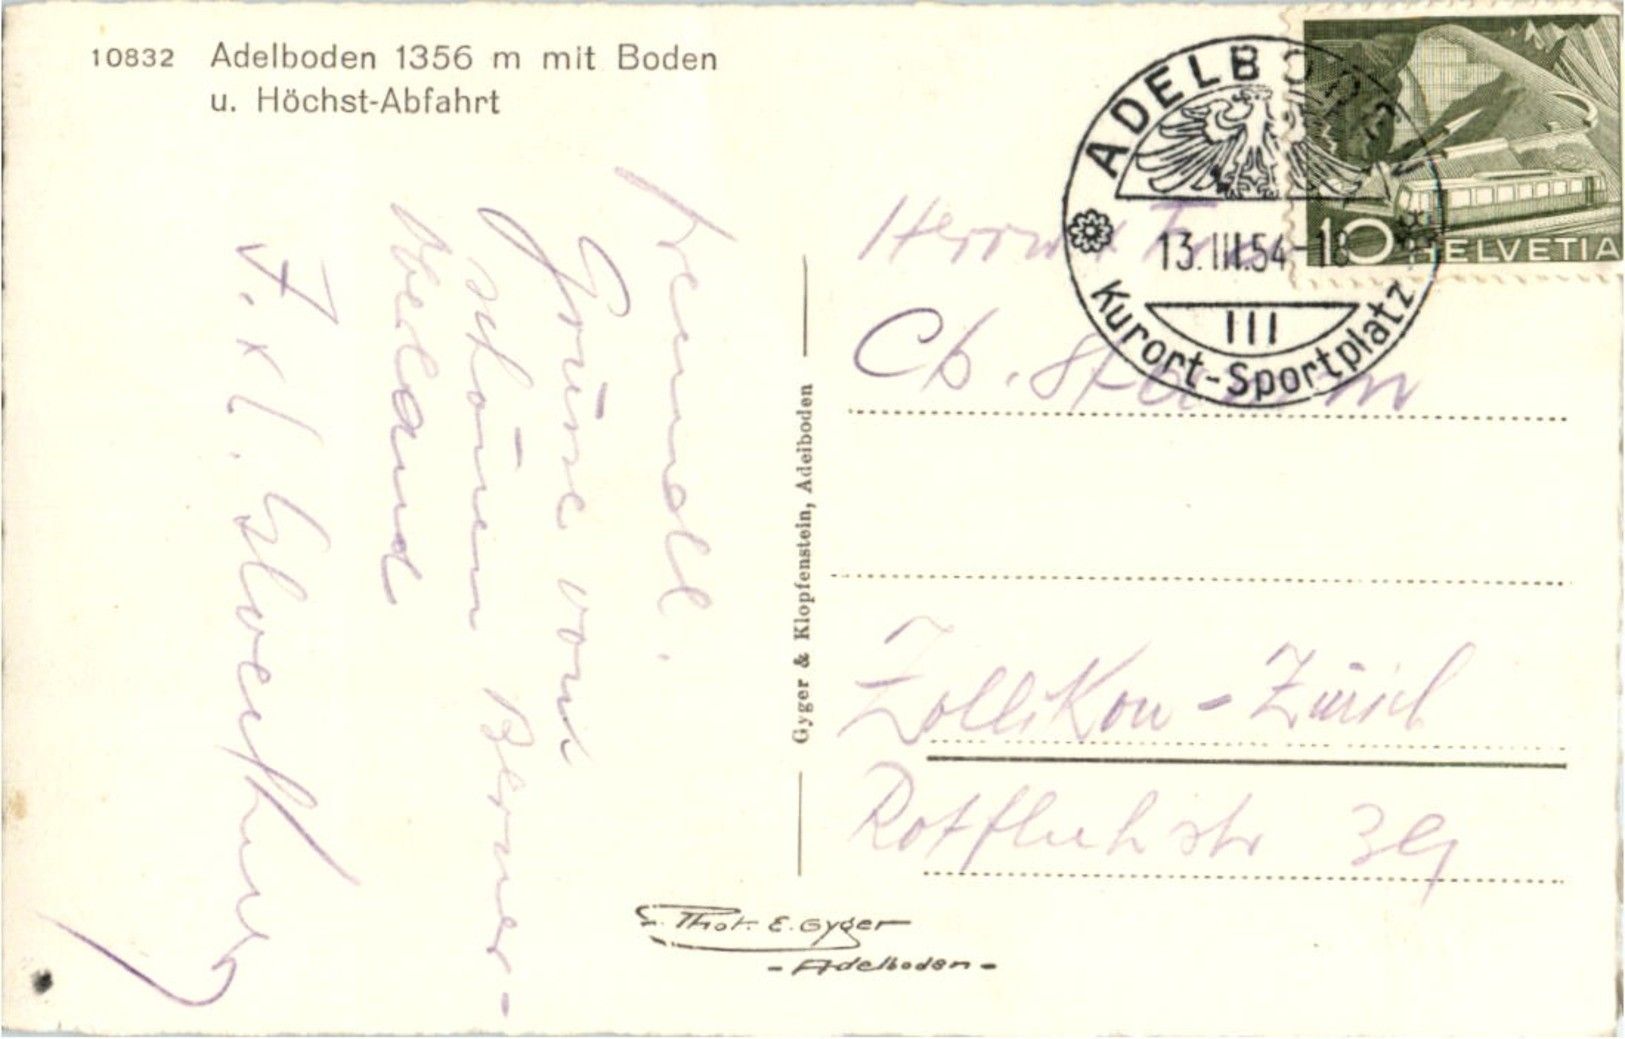 10832 Adelboden 1356 m mit Boden
u. Höchst-Abfahrt
Freundl.
Grüsse vom
schönen Berner-
oberland
Gyger & Klopfenstein, Adelboden
Phot. E. Gyger
- Adelboden -
ADELBODEN
13.III.54-18
III
Kurort-Sportplatz
10 HELVETIA
Herrn
Ch.
Zollikon - Zürich
Rotfluhstr 39